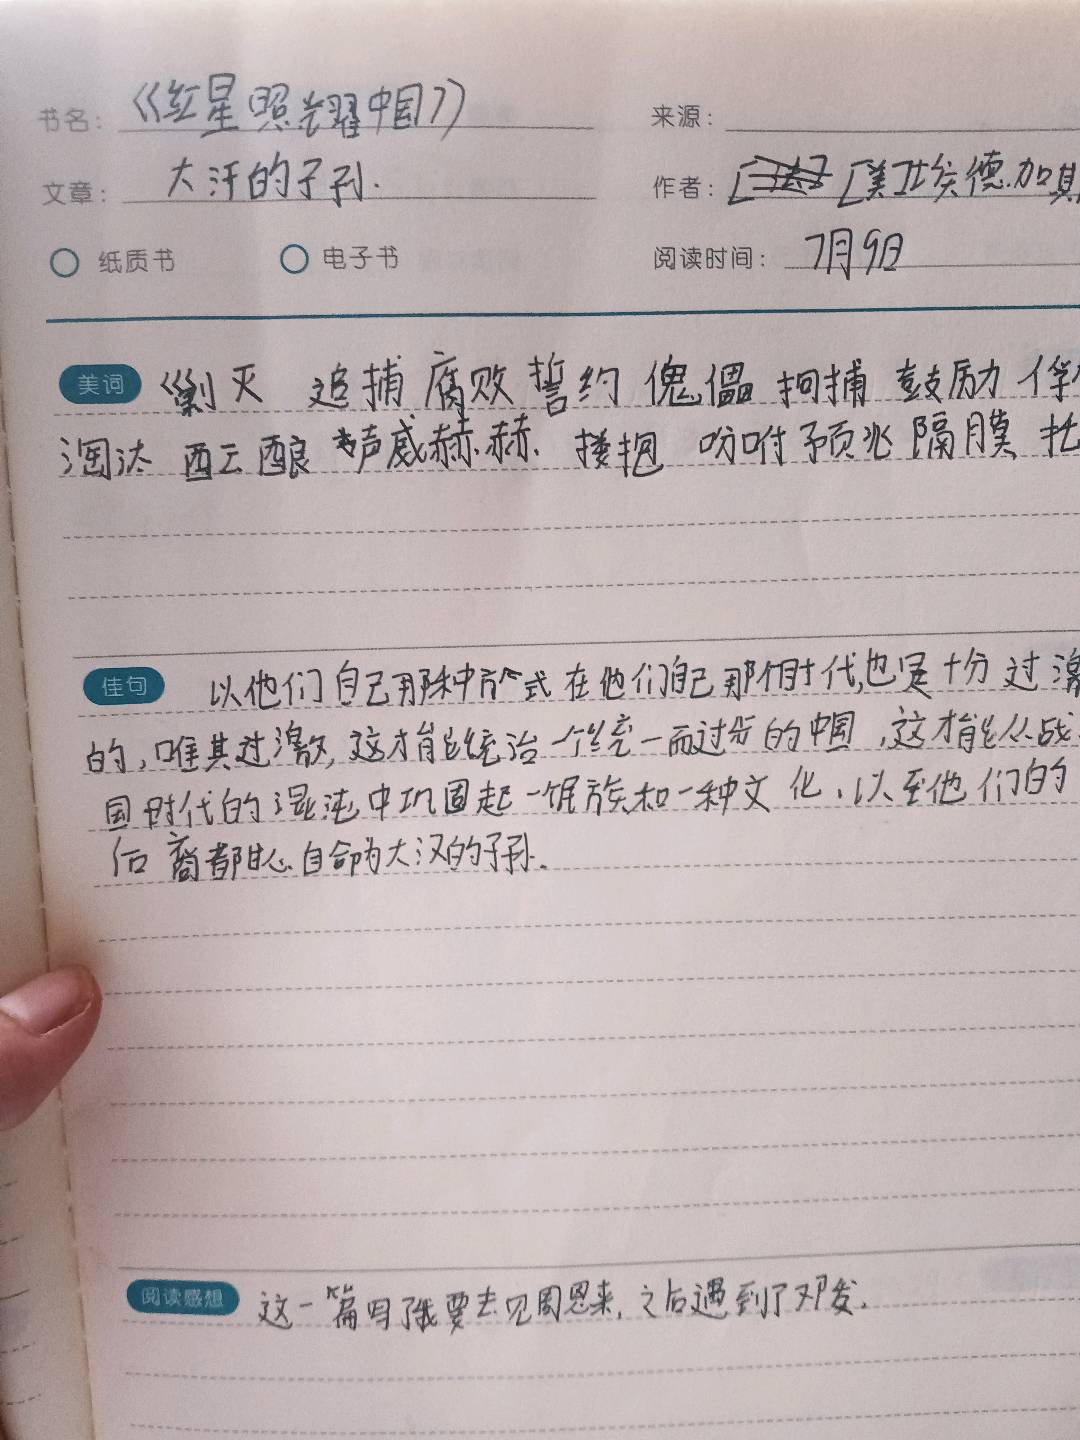 书名： 《红星照耀中国》 来源：
文章： 大汗的子孙. 作者： [美]埃德.加
纸质书 电子书 阅读时间： 7月9日
美词 剿灭 追捕 腐败 誓约 傀儡 拘捕 鼓励
淘汰 酝酿 声威赫赫. 搂抱 吩咐 预兆 隔膜
佳句 以他们自己那种方式在他们自己那个时代,也是十分过激
的,唯其过激,这才能统治一个统一而进步的中国,这才能从战
国时代的混沌中巩固起一个民族和一种文化,以至他们的
后裔都甘心自命为大汉的子孙.
阅读感想 这一篇写了我要去见周恩来,之后遇到了邓发.